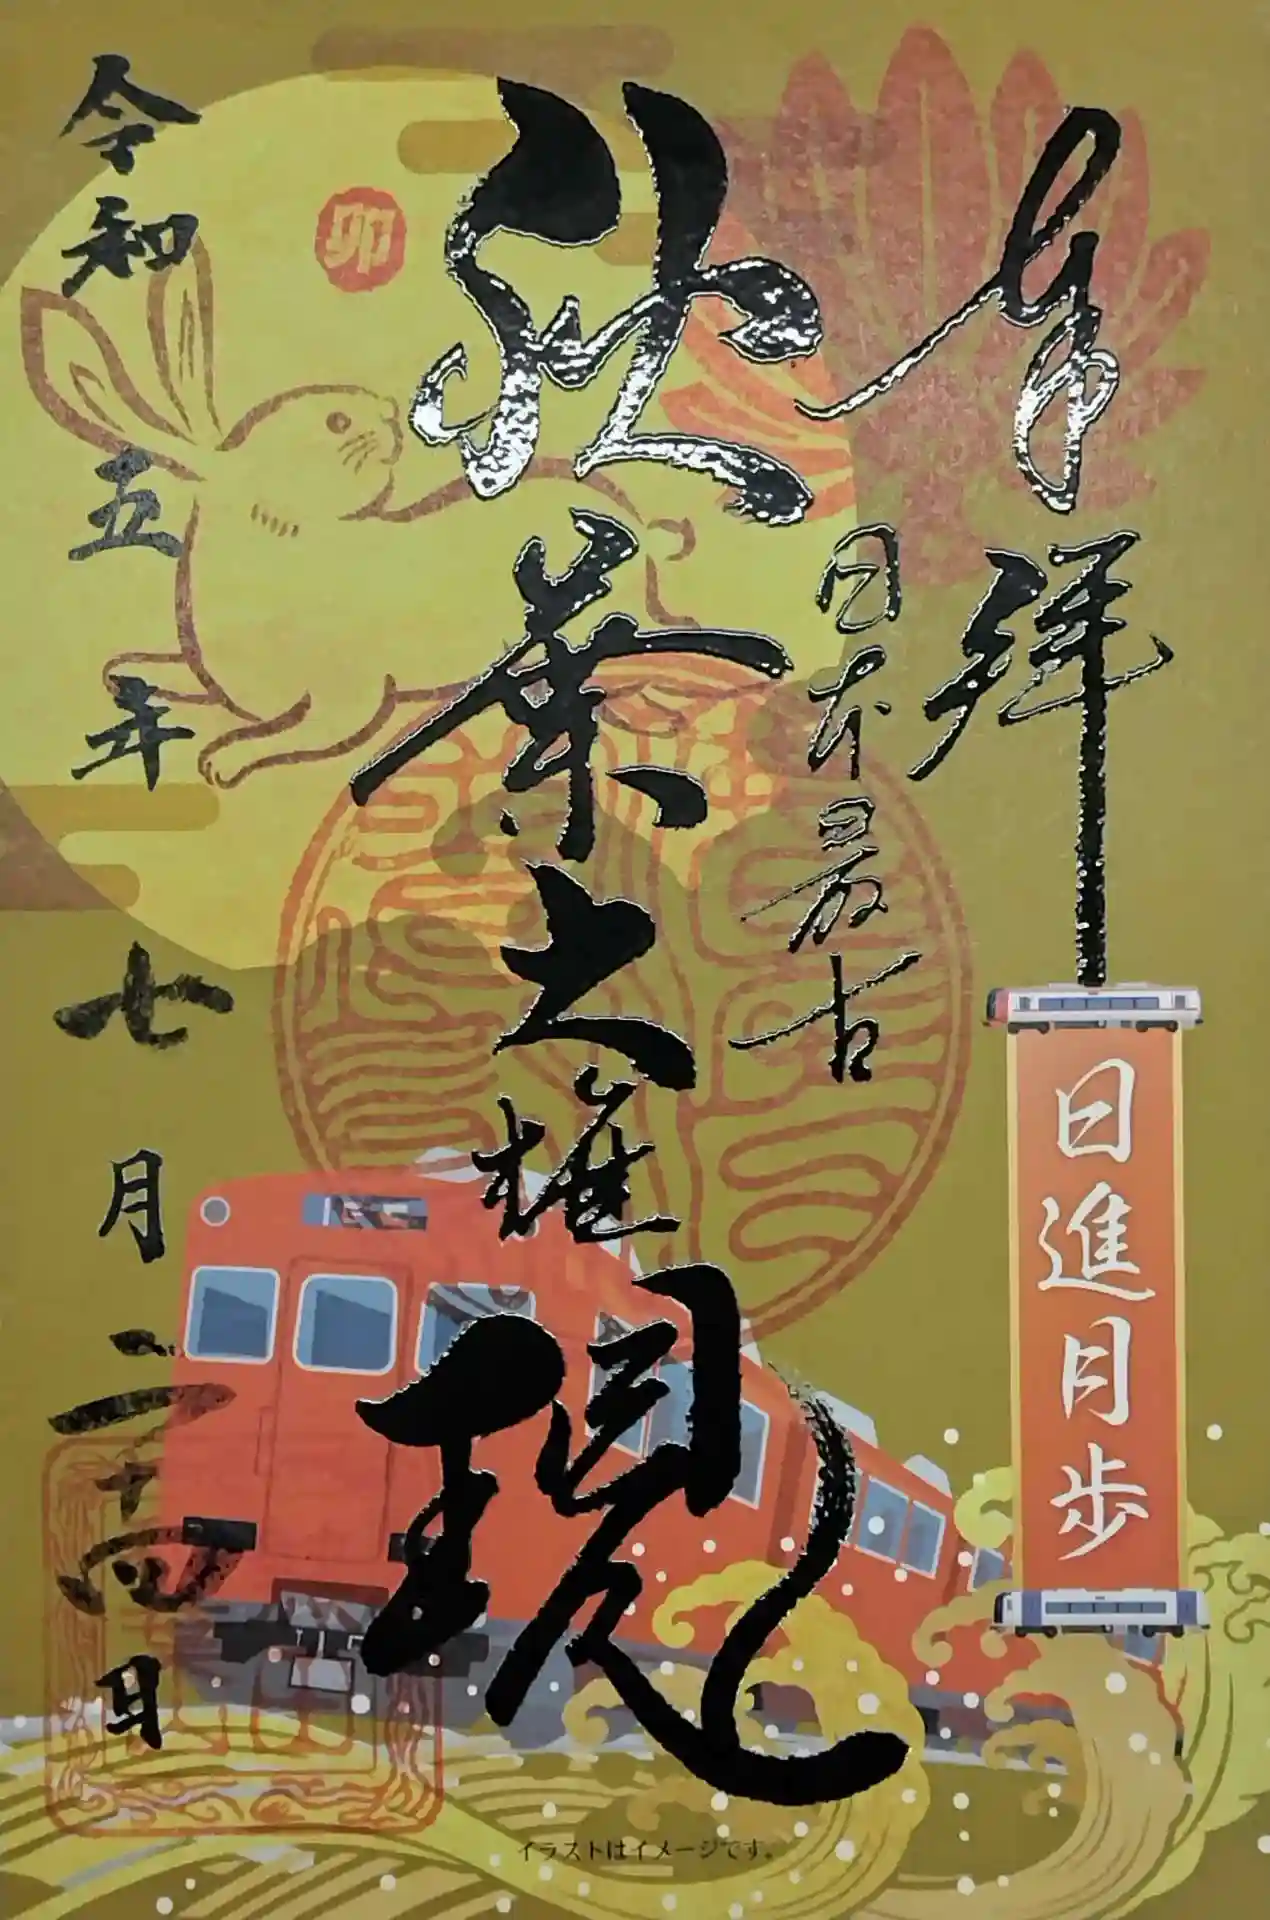 奉拝
日進月歩
日本最古
秋葉大権現
卯
令和五年七月二十四日
イラストはイメージです。